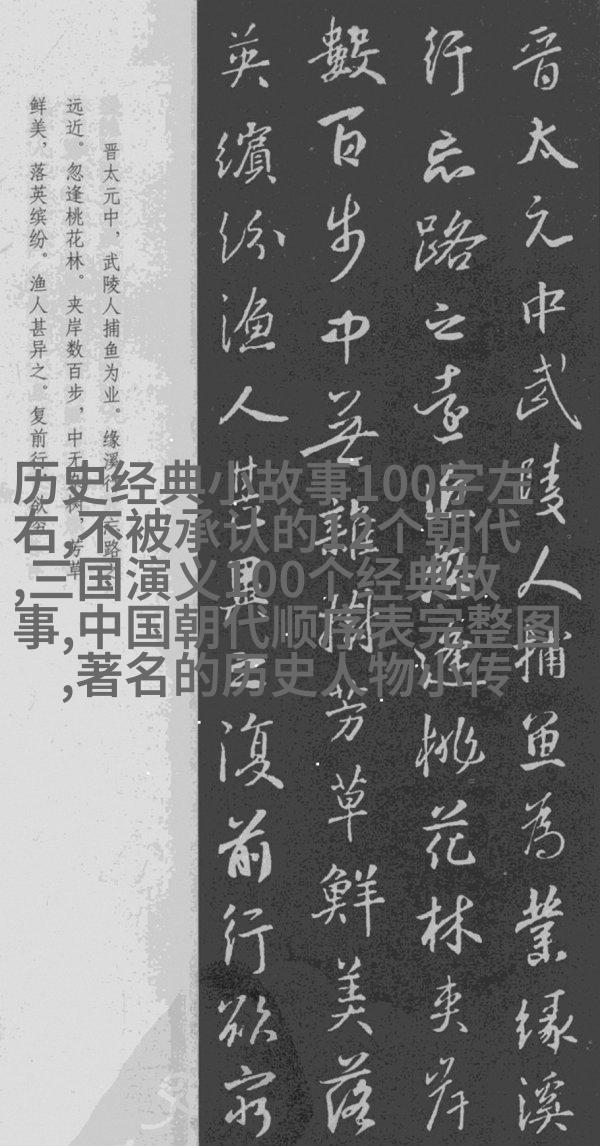 晋太元中武陵人捕魚為業緣溪
行忘路之遠近忽逢桃花林夾岸
數百步中無雜樹芳草鮮美落
英繽紛漁人甚異之復前行欲窮
晋太元中，武陵人捕鱼为业。缘溪行，忘路
远近。忽逢桃花林。夹岸数百步，中无杂树，芳草
鲜美，落英缤纷。渔人甚异之。复前行，欲穷
历史经典小故事100字左
右,不被承认的个朝代
,三国演义100个经典故
事,中国朝代顺序表完整图
,著名的历史人物小传